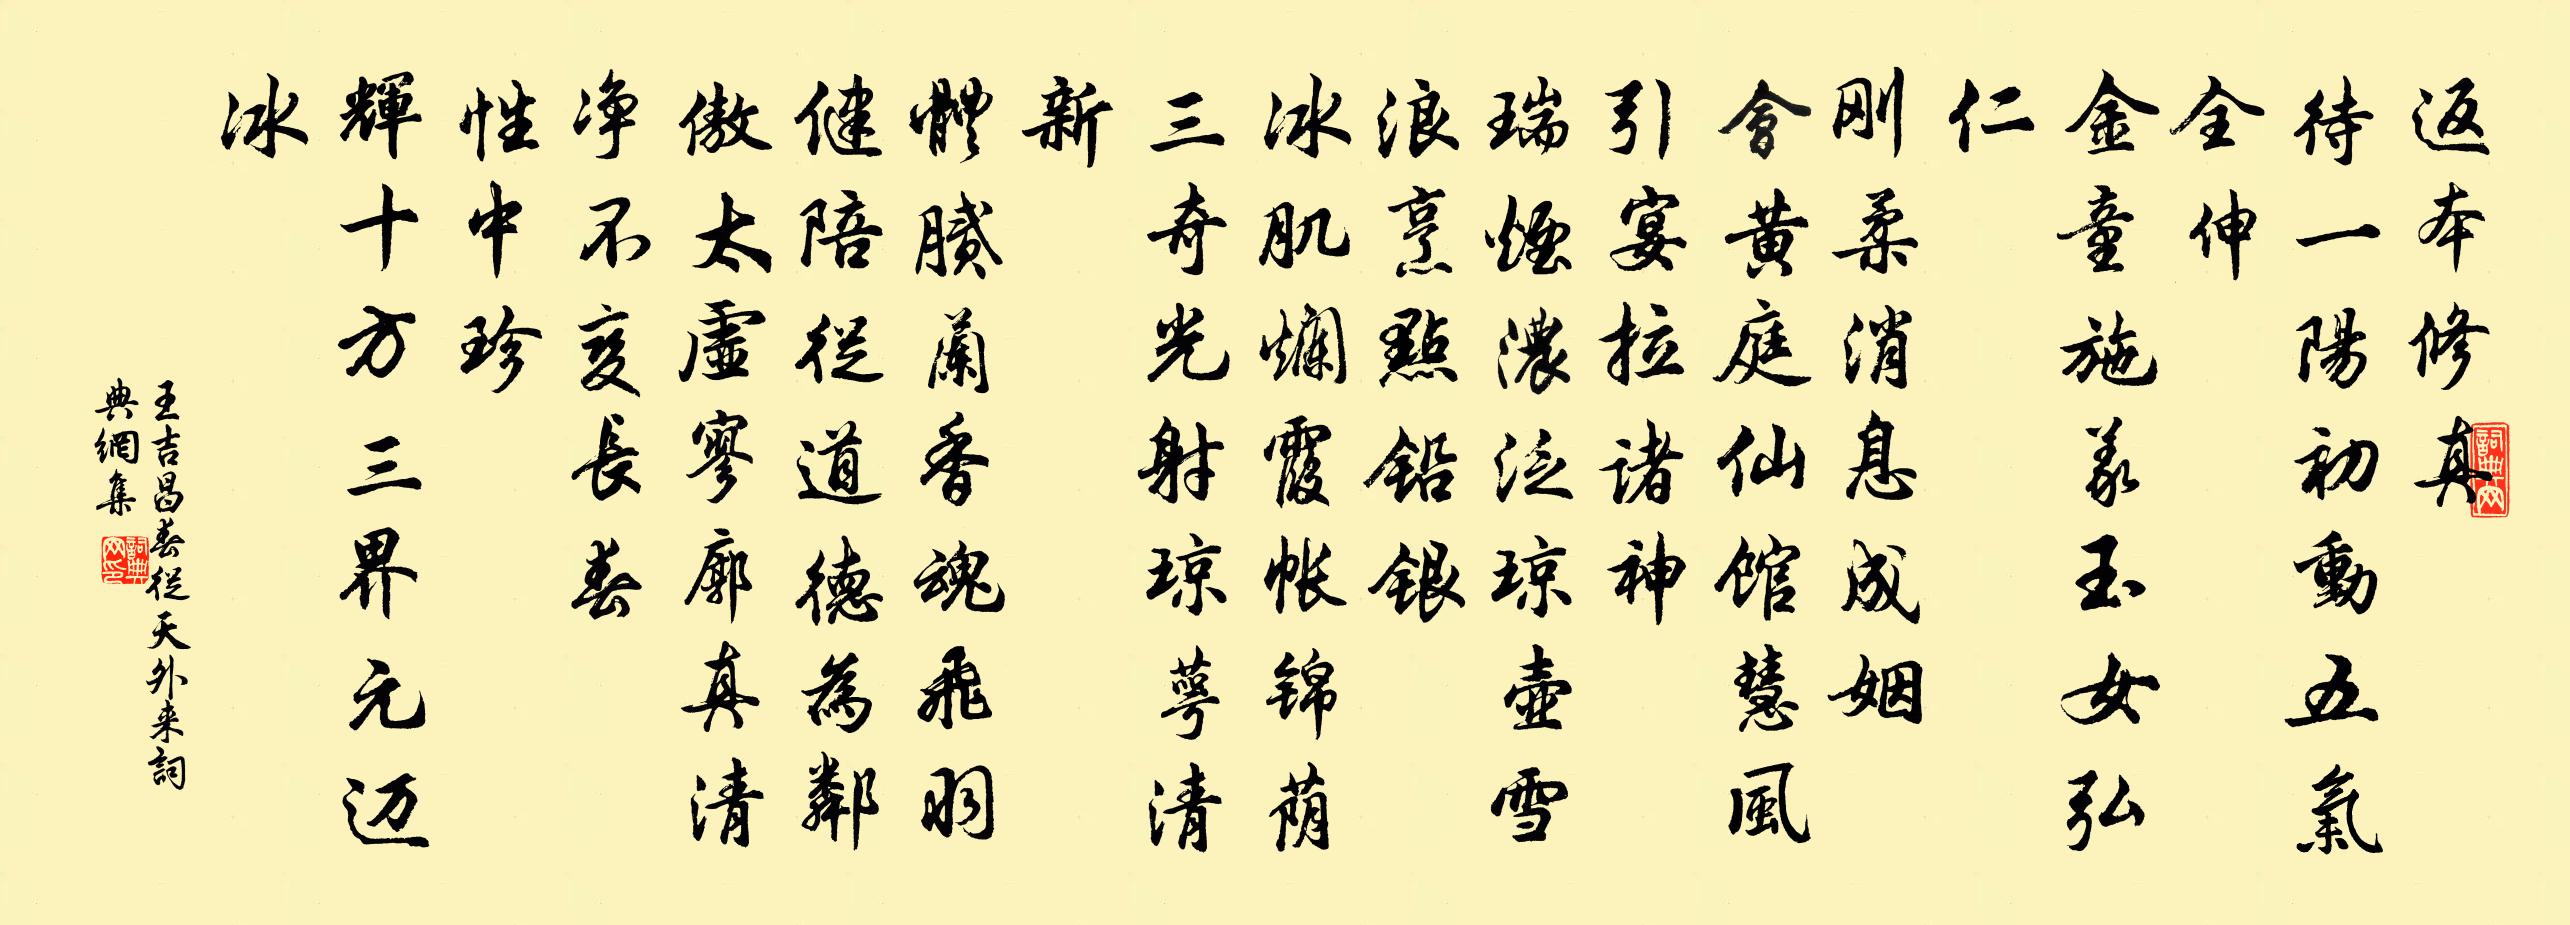 返本修真
待一陽初動五氣
全伸
金童施義玉女弘
仁
剛柔消息成姻
會黃庭仙館慧風
引宴拉諸神
瑞煙濃泛琼壺雪
浪烹點鉛銀
冰肌爛霞帐锦荫
三奇光射琼萼清
新
體膩蘭香魂飛羽
健陪從道德為鄰
傲太虛寥廓真清
净不变長春
性中珍
輝十方三界元迈
冰
王吉昌春從天外来詞
典網集